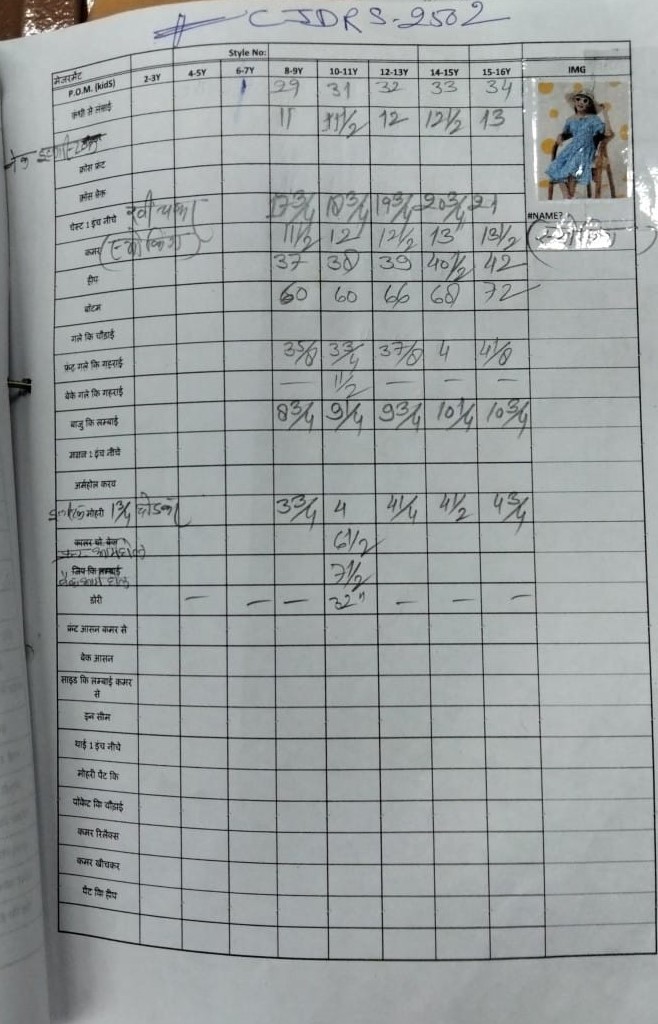 CJDRS-2502
Style No:
मेजरमेंट
P.O.M. (kidS) 2-3Y 4-5Y 6-7Y 8-9Y 10-11Y 12-13Y 14-15Y 15-16Y IMG
कंधी से लंबाई 29 31 32 33 34
11 11 1/2 12 12 1/2 13
क्रॉस फ्रंट
क्रॉस बेक
चेस्ट 1 इंच नीचे 17 3/4 18 3/4 19 3/4 20 3/4 21
#NAME?
कमर 11 1/2 12 12 1/2 13 13 1/2
हीप 37 38 39 40 1/2 42
बॉटम 60 60 66 68 72
गले कि चौड़ाई
फ्रंट गले कि गहराई 3 5/8 3 3/4 3 7/8 4 4 1/8
बेके गले कि गहराई — 1 1/2 — — —
बाजु कि लम्बाई 8 3/4 9 1/4 9 3/4 10 1/4 10 3/4
मसल 1 इंच नीचे
अर्महोल करव
मोहरी 1 3/4 3 3/4 4 4 1/4 4 1/2 4 3/4
6 1/2
7 1/2
डोरी — — — 32" — — —
फ्रंट आसन कमर से
बेक आसन
साइड कि लम्बाई कमर
से
इन सीम
थाई 1 इंच नीचे
मोहरी पैंट कि
पॉकेट कि चौड़ाई
कमर रिलैक्स
कमर खीचकर
पैंट कि हीप